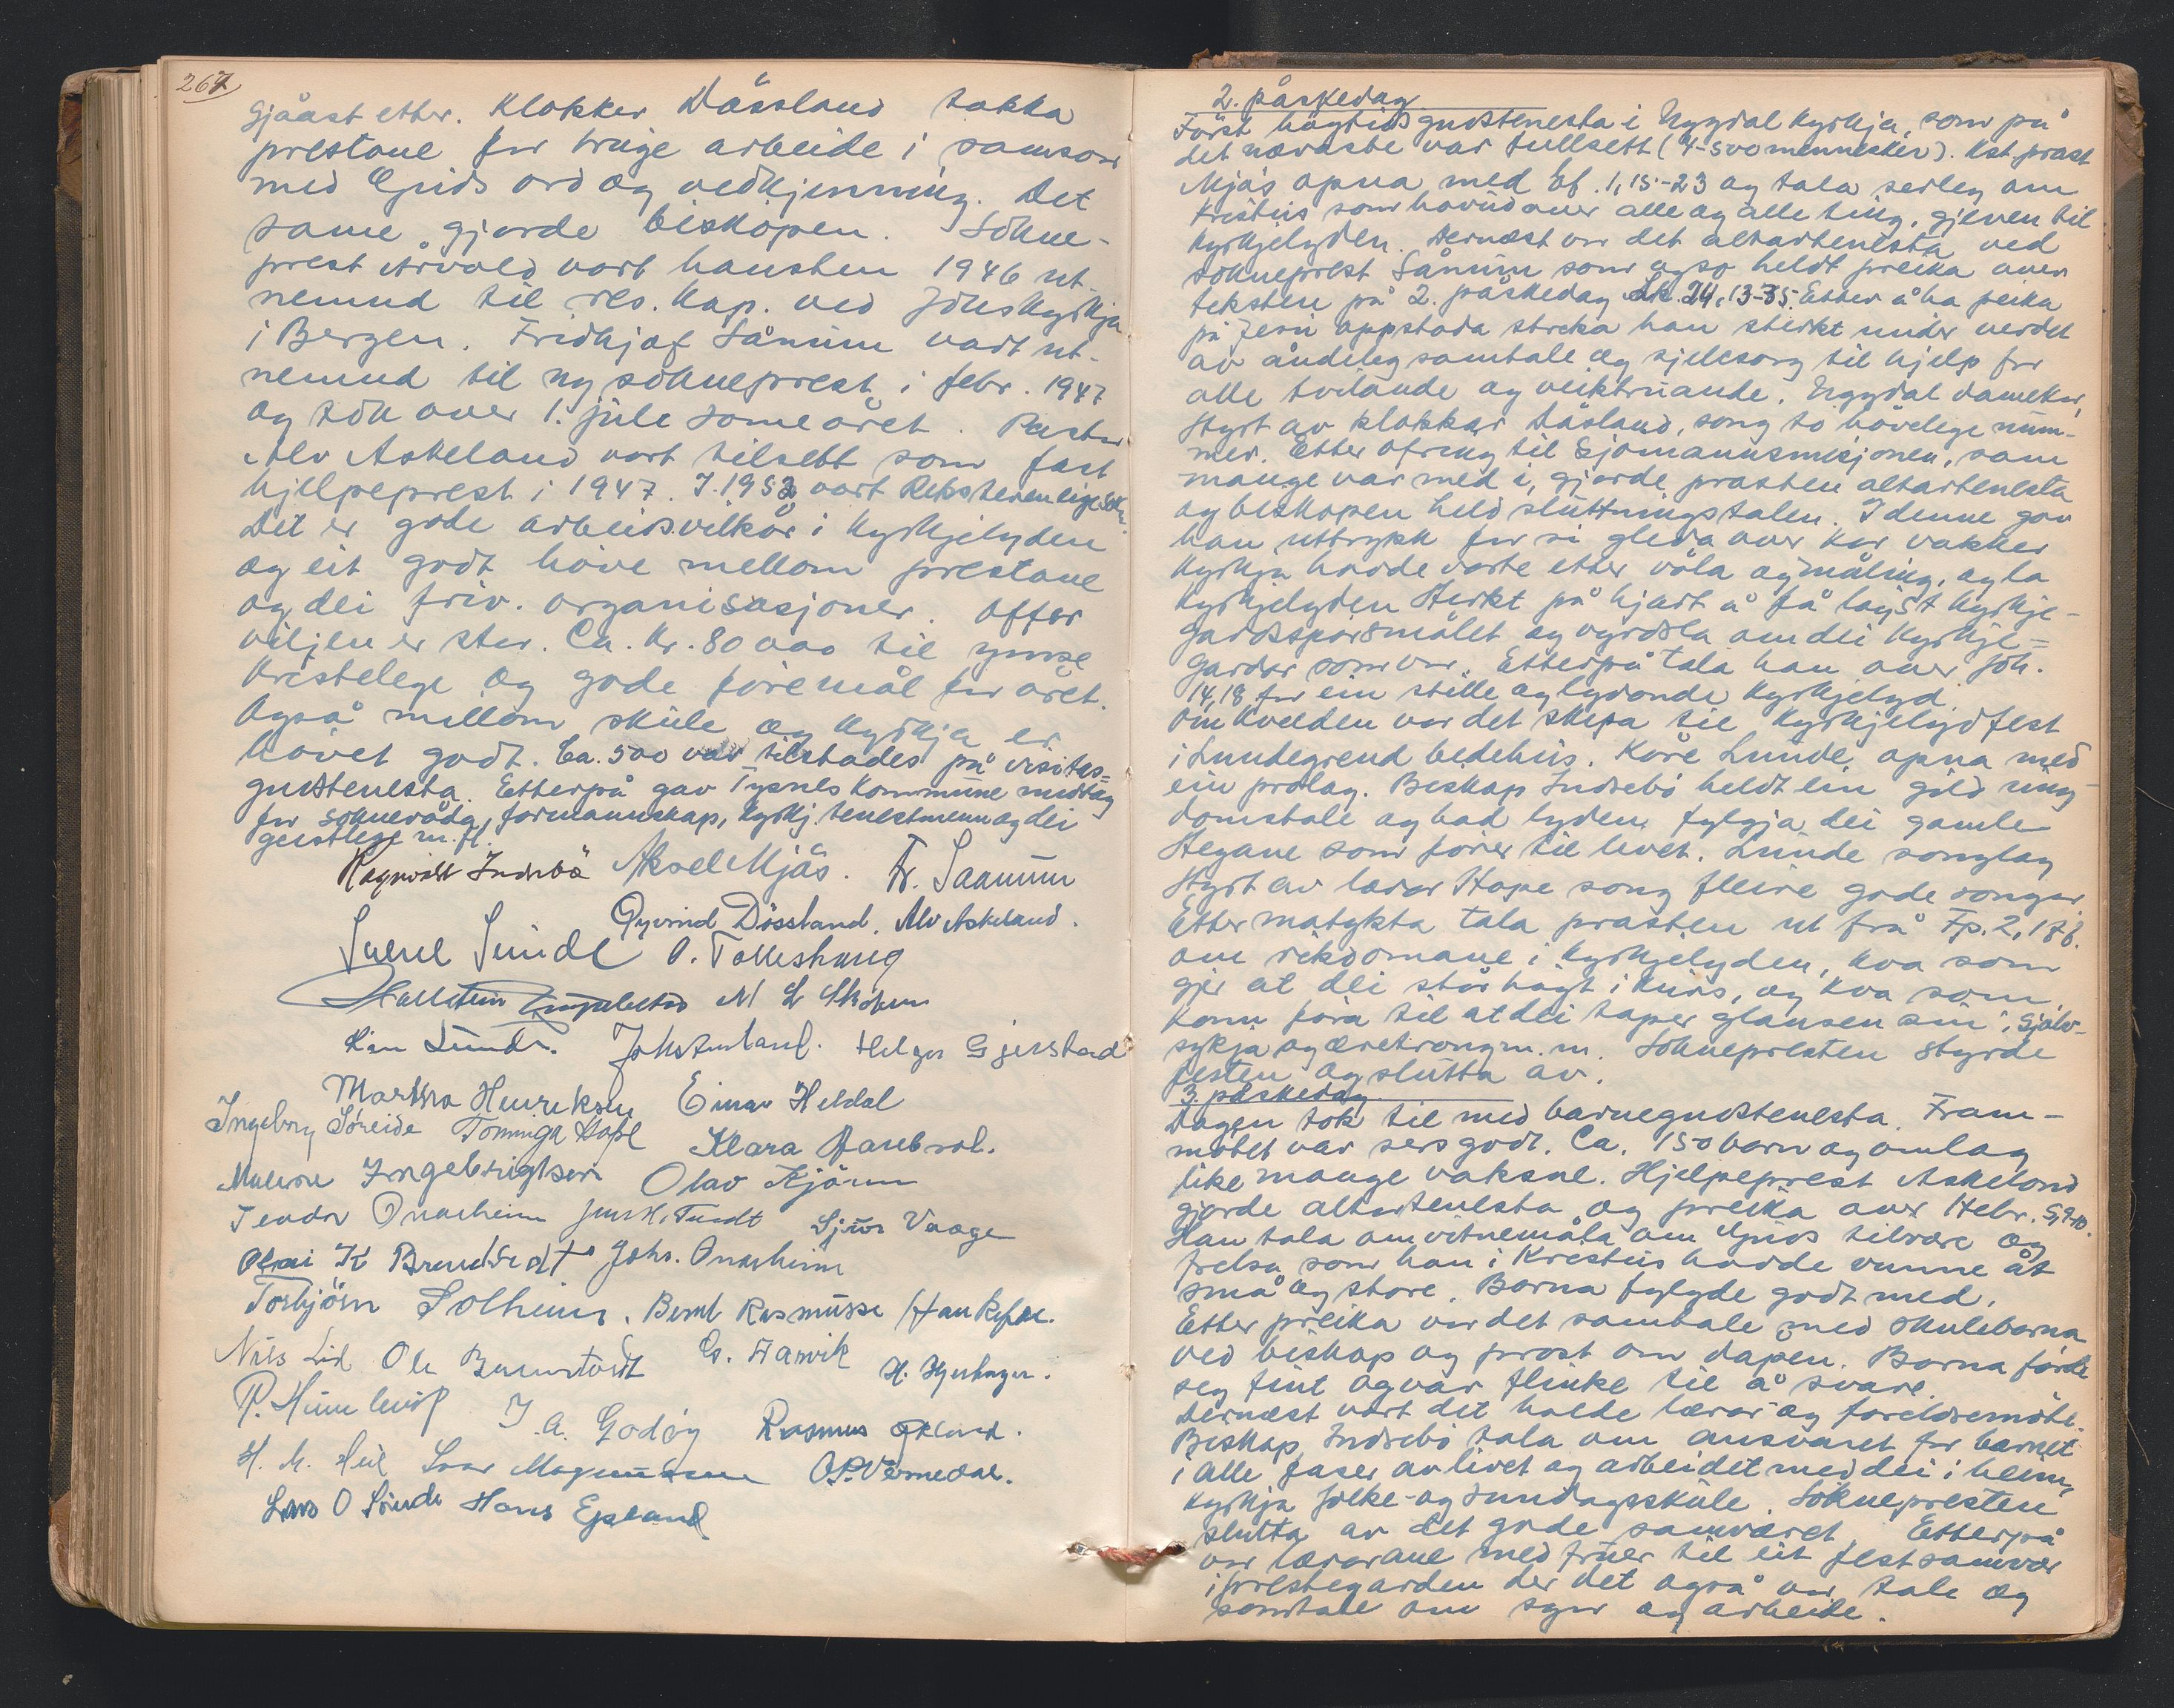 267
gjåast etter. Klokker Døssland takka
prestane for truge arbeide i samsvar
med Guds ord og vedkjenning. Det
same gjorde biskopen. Sokne-
prest Årvold vart hausten 1946 ut-
nemnd til res. kap. ved Johskyrkja
i Bergen. Fridhjof Sånum vart ut-
nemnd til ny sokneprest i febr. 1947
og tok over 1. jule same året. Pastor
Alv Askeland vart tilsett som fast
hjelpeprest i 1947. I 1952 vart Reksteren eige sokn.
Det er gode arbeidsvilkår i kyrkjelyden
og eit godt høve mellom prestane
og dei friv. organisasjoner. Offer
viljen er stor. Ca. kr. 80 000 til ymse
kristelege og gode føremål for året.
Også mellom skule og kyrkja er
høvet godt. Ca. 500 var tilstades på visitas=
gudstenesta. Etterpå gav Tysnes kommune middag
for sokneråda, formannskap, kyrkj. tenestmenn og dei
geistlege m. fl.
Ragnvald Indrebø Aksel Mjås. Fr. Saanum
Øyvind Døssland. Alv Askeland.
O. Tolleshaug
Hallstein
Helger Gjerstad
Martha Henriksen Einar Heldal
Ingeborg Søreide Tominga Hope Klara
Ingebrigtsen Olav Kjörn
Teodor Onarheim Sjur Vaage
Olai K Brendsedt Johs. Onarheim
Torbjörn Solheim. Bernt Rasmusse
Nils Lid Ole G. Warvik
P.
I. A. Godøy Rasmus Økland.
H. M. Lars Magnussen O.P. Vernedal.
Lars O Lunde Hans Epland
2. påskedag
Først høgtidsgudstenesta i Uggdal kyrkja, som på
det næraste var fullsett (4-500 mennesker). Kst. prost
Mjås opna med Ef. 1, 15-23 og tala serleg om
Kristus som hovud over alle og alle ting, gjeven til
kyrkjelyden. Dernæst var det altartenesta ved
sokneprest Sånum som også heldt preika over
teksten på 2. påskedag Lk. 24, 13-35. Etter å ha peika
på Jesu oppstoda streka han sterkt under verdet
av åndeleg samtale og sjelesorg til hjelp for
alle tvilande og veiktruande. Uggdal damekor,
styrt av klokkar Døsland, song to høvelege num-
mer. Etter ofring til Sjømannsmisjonen, som
mange var med i, gjorde prosten altartenesta
og biskopen held sluttningstalen. I denne gav
han uttrykk for si gleda over kor vakker
kyrkja hadde vorte etter vøla og måling, og la
kyrkjelyden sterkt på hjart å få løyst kyrkje-
gardsspørsmålet og vyrdsla om dei kyrkje=
gardar som var. Etterpå tala han over Joh.
14, 18 for ein stille og lydande kyrkjelyd.
Om kvelden var det skipa til kyrkjelydfest
i Lundegrend bedehus. Kåre Lunde opna med
ein prolog. Biskop Indrebø heldt ein gild ung-
domstale og bad lyden fylgja dei gamle
stegane som fører til livet. Lunde songlag
styrt av lærar Hope song fleire gode songar.
Etter matykta tala prosten ut frå Fp. 2, 17f.
om rikdomane i kyrkjelyden, kva som
gjer at dei står høgt i kurs, og kva som
kann føra til at dei taper glansen sin, sjølv-
sykja og æretrong m. m. Soknepresten styrde
festen og slutta av.
3. påskedag.
Dagen tok til med barnegudstenesta. Fram-
møtet var sers godt. Ca. 150 born og omlag
like mange vaksne. Hjelpeprest Askeland
gjorde altartenesta og preika over Hebr. 5,7-10.
Han tala om vitnemåla om Guds tilvære og
frelsa som han i Kristus hadde vunne åt
små og store. Borna fylgde godt med.
Etter preika var det samtale med skuleborna
ved biskop og prost om dåpen. Borna førde
seg fint og var flinke til å svare.
Dernæst vart det halde lærar og foreldremøte.
Biskop Indrebø tala om ansvaret for barnet
i alle faser av livet og arbeidet med dei i heim,
kyrkja folke- og sundagsskule. Soknepresten
slutta av det gode samværet. Etterpå
var lærarane med fruer til eit festsamvær
i prestegarden der det også var tale og
samtale om syn og arbeide.